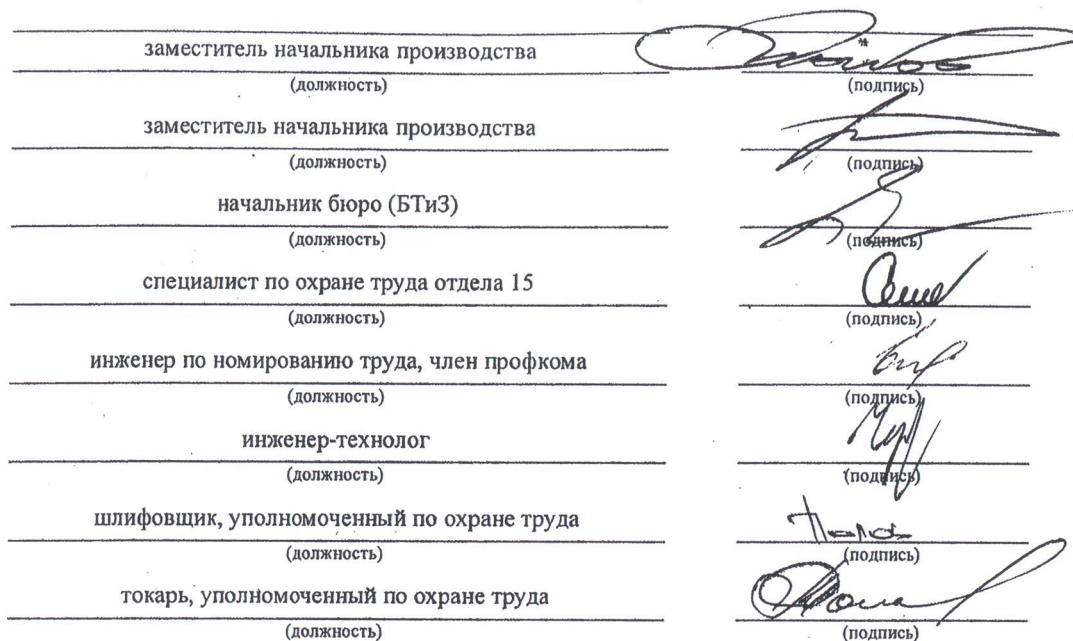 заместитель начальника производства
(должность) (подпись)
заместитель начальника производства
(должность) (подпись)
начальник бюро (БТиЗ)
(должность) (подпись)
специалист по охране труда отдела 15
(должность) (подпись)
инженер по номированию труда, член профкома
(должность) (подпись)
инженер-технолог
(должность) (подпись)
шлифовщик, уполномоченный по охране труда
(должность) (подпись)
токарь, уполномоченный по охране труда
(должность) (подпись)